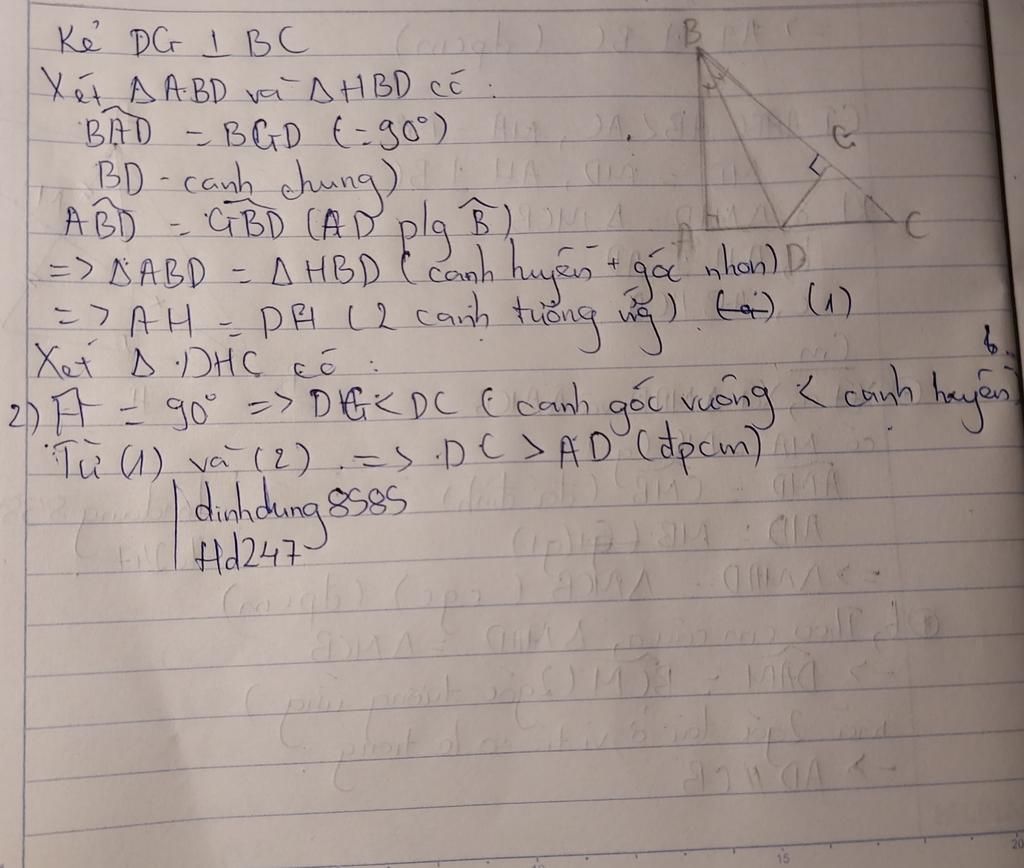 Kẻ DG ⊥ BC
Xét ΔABD và ΔHBD có :
BAD = BGD (=90°)
BD - cạnh chung)
ABD = GBD (AD p/g B)
=> ΔABD = ΔHBD (cạnh huyền + góc nhọn)
=> AH = DH (2 cạnh tương ứng) (1)
Xét Δ DHC có :
2) H = 90° => DG < DC (cạnh góc vuông < cạnh huyền)
Từ (1) và (2) => DC > AD (đpcm)
dinhdung8585
Hd247
B
G
A
D
C